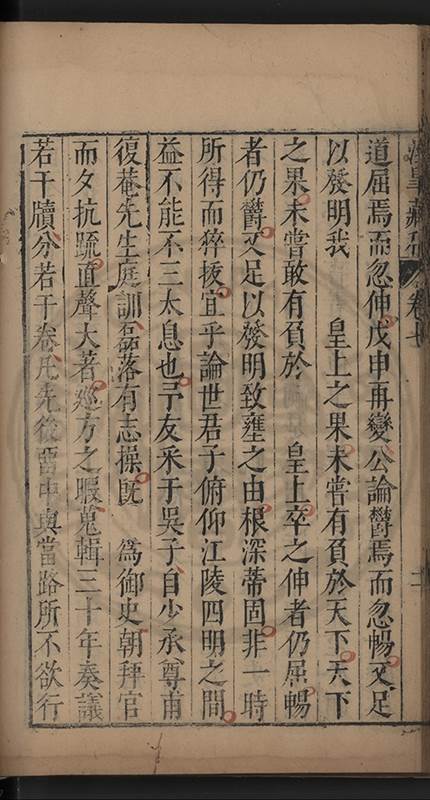 卷七
道屈焉而忽伸戊申再變公論鬱焉而忽暢又足
以發明我　皇上之果未嘗有負於天下天下
之果未嘗敢有負於　皇上卒之伸者仍屈暢
者仍鬱又足以發明致壅之由根深蒂固非一時
所得而猝拔宜乎論世君子俯仰江陵四明之間
益不能不三太息也予友采于吳子自少承尊甫
復菴先生庭訓磊落有志操既　為御史朝拜官
而夕抗疏直聲大著廵方之暇蒐輯三十年奏議
若干牘分若干卷凡先後留中與當路所不欲行